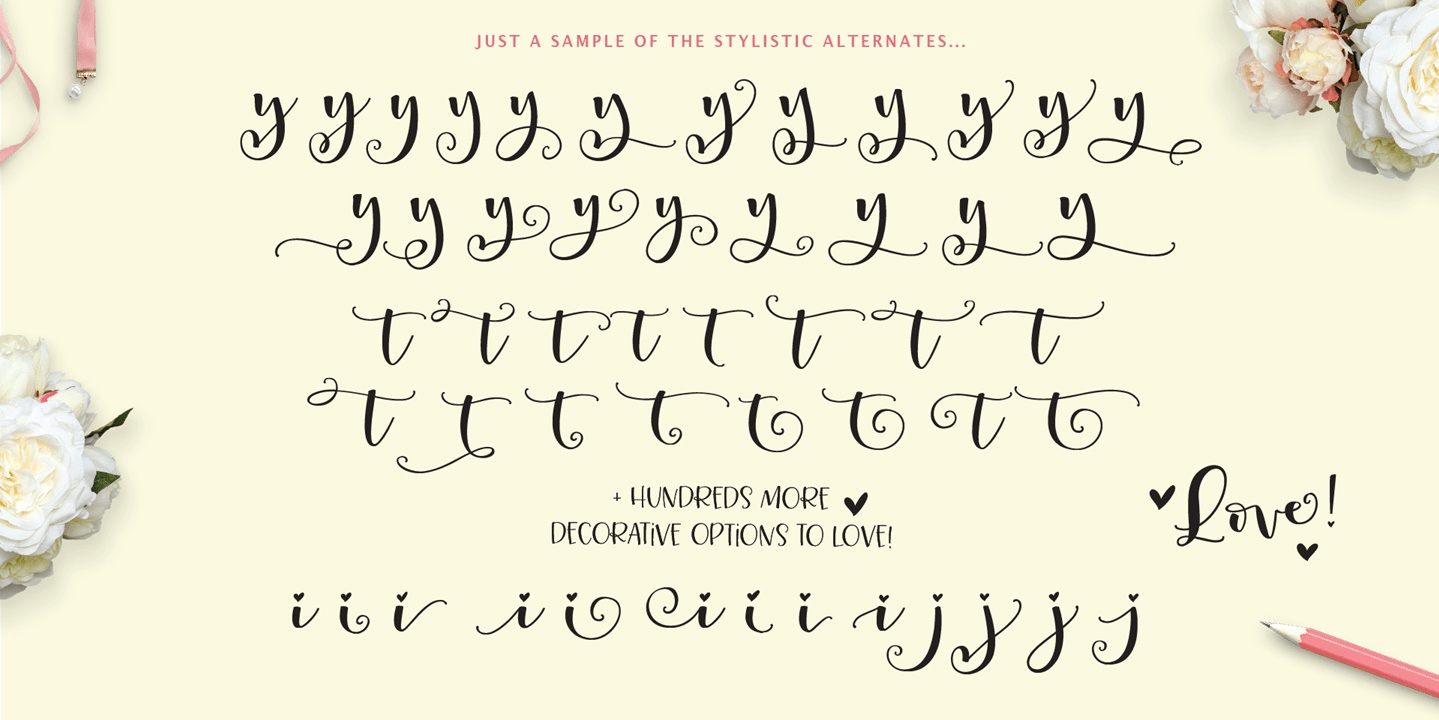 JUST A SAMPLE OF THE STYLISTIC ALTERNATES...
y y y y y y y y y y y y
y y y y y y y y y
t t t t t t t t
t t t t t t t t
+ HUNDREDS MORE
DECORATiVE OPTiONS TO LOVE!
Love!
i i i i i i i i i j j j j